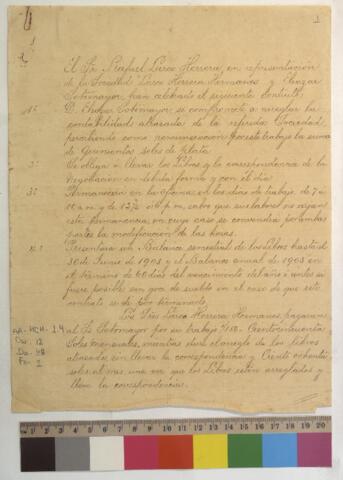 1
El Sr. Rafael Larco Herrera, en representación
de la Sociedad Larco Herrera Hermanos y Eleazar
Sotomayor, han celebrado el siguiente contrato:
1°. D. Eleazar Sotomayor se compromete a arreglar la
contabilidad atrasada de la referida Sociedad
percibiendo como remuneración por este trabajo la suma
de Quinientos soles de plata
2°. Se obliga a llevar los Libros y la correspondencia de la
Negociación en debida forma y con el día
3°. Permanecer en la oficina en los días de trabajo, de 7 á
10 a m y de 12½ á 6 p m, salvo que su labor no exija
esta permanencia en cuyo caso se convendrá por ambas
partes la modificación de las horas.
4°. Presentar un Balance semestral de los Libros hasta el
30 de Junio de 1903 y el Balance anual de 1903 en
el término de 60 días del vencimiento del año ó antes si
fuere posible sin goce de sueldo en el caso de que este
contrato se dé por terminado
Los Sres Larco Herrera Hermanos pagarán
al Sr Sotomayor por su trabajo Ciento cincuenta
Soles mensuales, mientras dure el arreglo de los libros
atrasados, sin llevar la correspondencia y Ciento ochenta
soles al mes una vez que los Libros estén arreglados y
lleve la correspondencia.
1.4
Do. 48
1 2 3 4 5 6 7 8 9 10 11 12 13 14 15 16 17 18 19 20